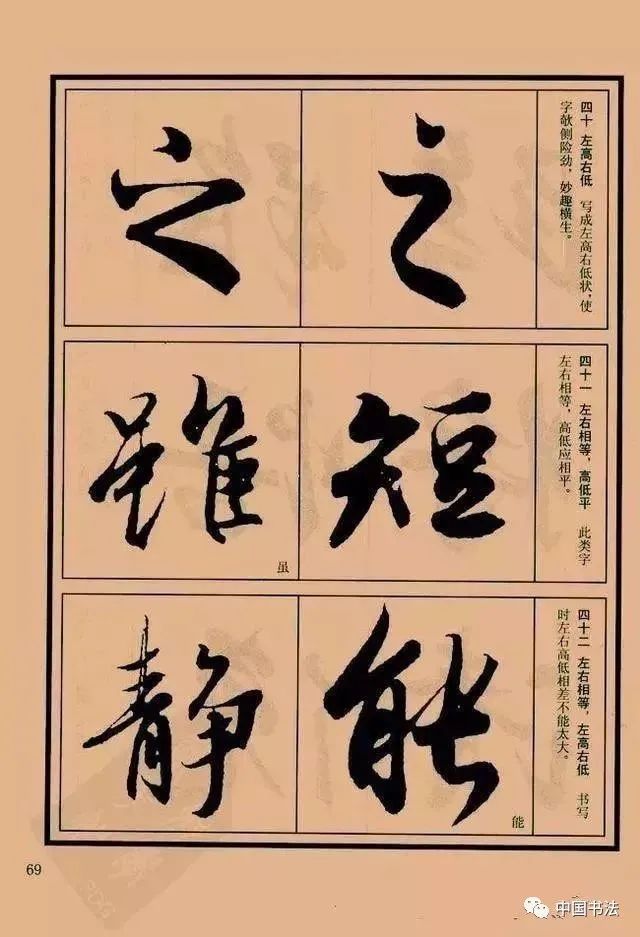 四十 左高右低 写成左高右低状，使
字欹侧险劲，妙趣横生。
之
之
四十一 左右相等，高低平 此类字
左右相等，高低应相平。
短
雖
虽
四十二 左右相等，左高右低 书写
时左右高低相差不能太大。
能
能
静
69
中国书法